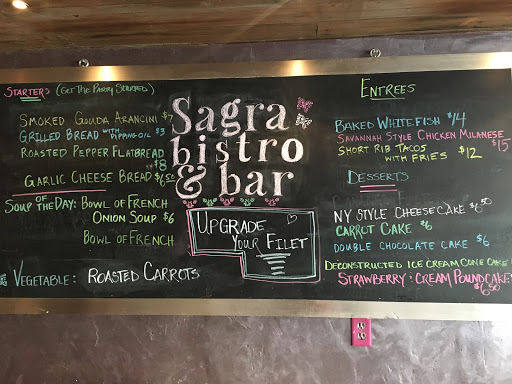 STARTERS (GET THE PARTY STARTED)
SMOKED GOUDA ARANCINI $7
GRILLED BREAD WITH DIPPING OIL $3
ROASTED PEPPER FLATBREAD
$8
GARLIC CHEESE BREAD $6.50
SOUP OF THE DAY: BOWL OF FRENCH
ONION SOUP $6
BOWL OF FRENCH
VEGETABLE: ROASTED CARROTS
Sagra
bistro
& bar
UPGRADE
YOUR FILET
ENTREES
BAKED WHITEFISH $14
SAVANNAH STYLE CHICKEN MILANESE
$15
SHORT RIB TACOS
WITH FRIES $12
DESSERTS
NY STYLE CHEESECAKE $6.50
CARROT CAKE $6
DOUBLE CHOCOLATE CAKE $6
DECONSTRUCTED ICE CREAM CONE CAKE
STRAWBERRY & CREAM POUNDCAKE
$6.50